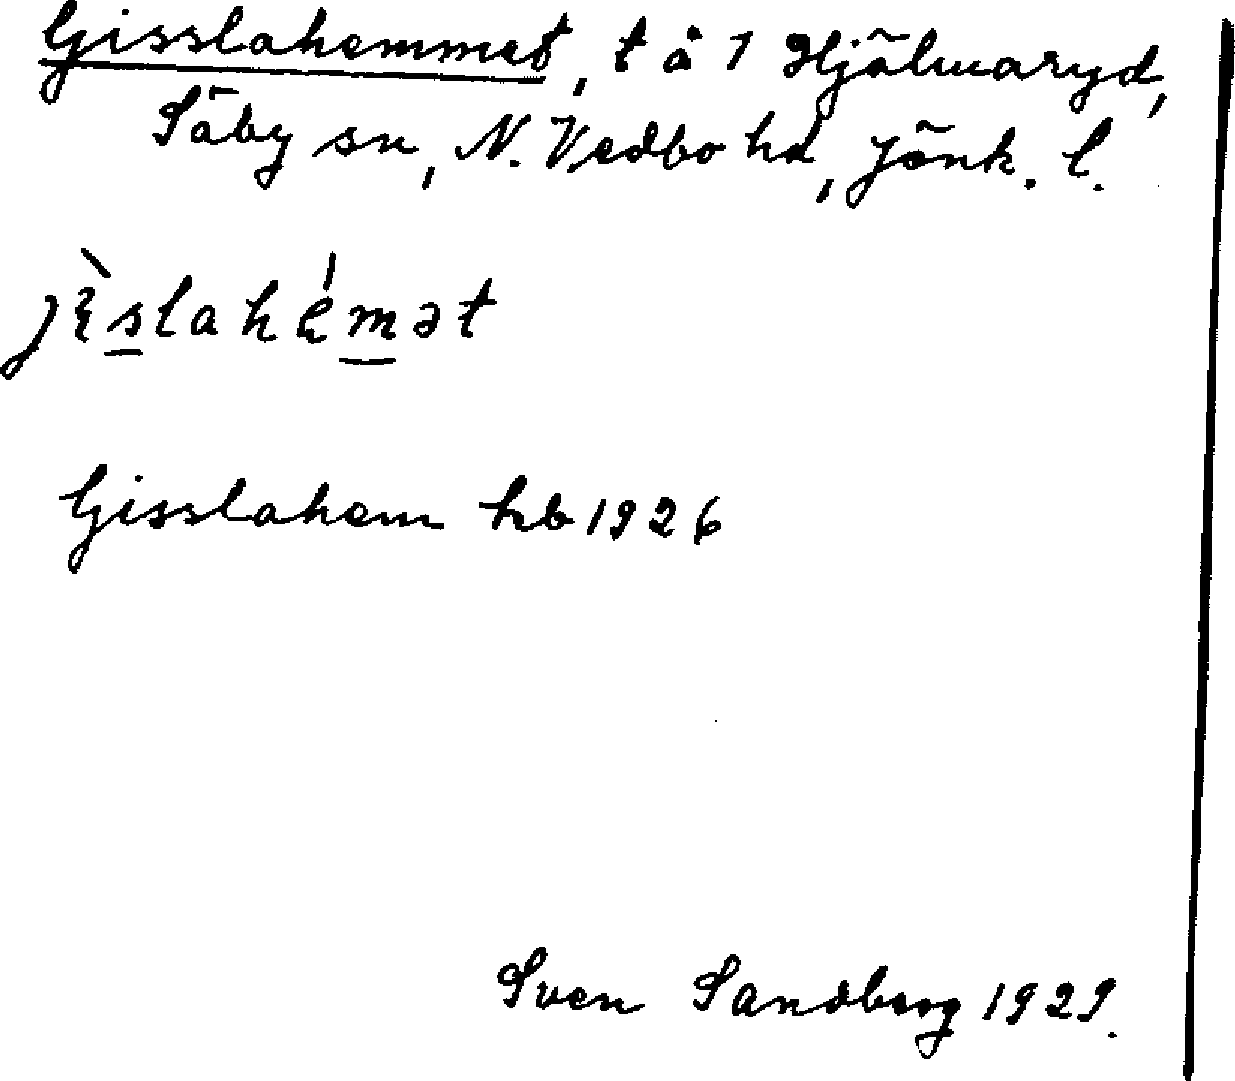 Gisslahemmet, t å 1 Hjälmaryd,
Säby sn, N. Vedbo hd, Jönk. l.
jìslahémət
Gisslahem hb 1926
Sven Sandberg 1929.